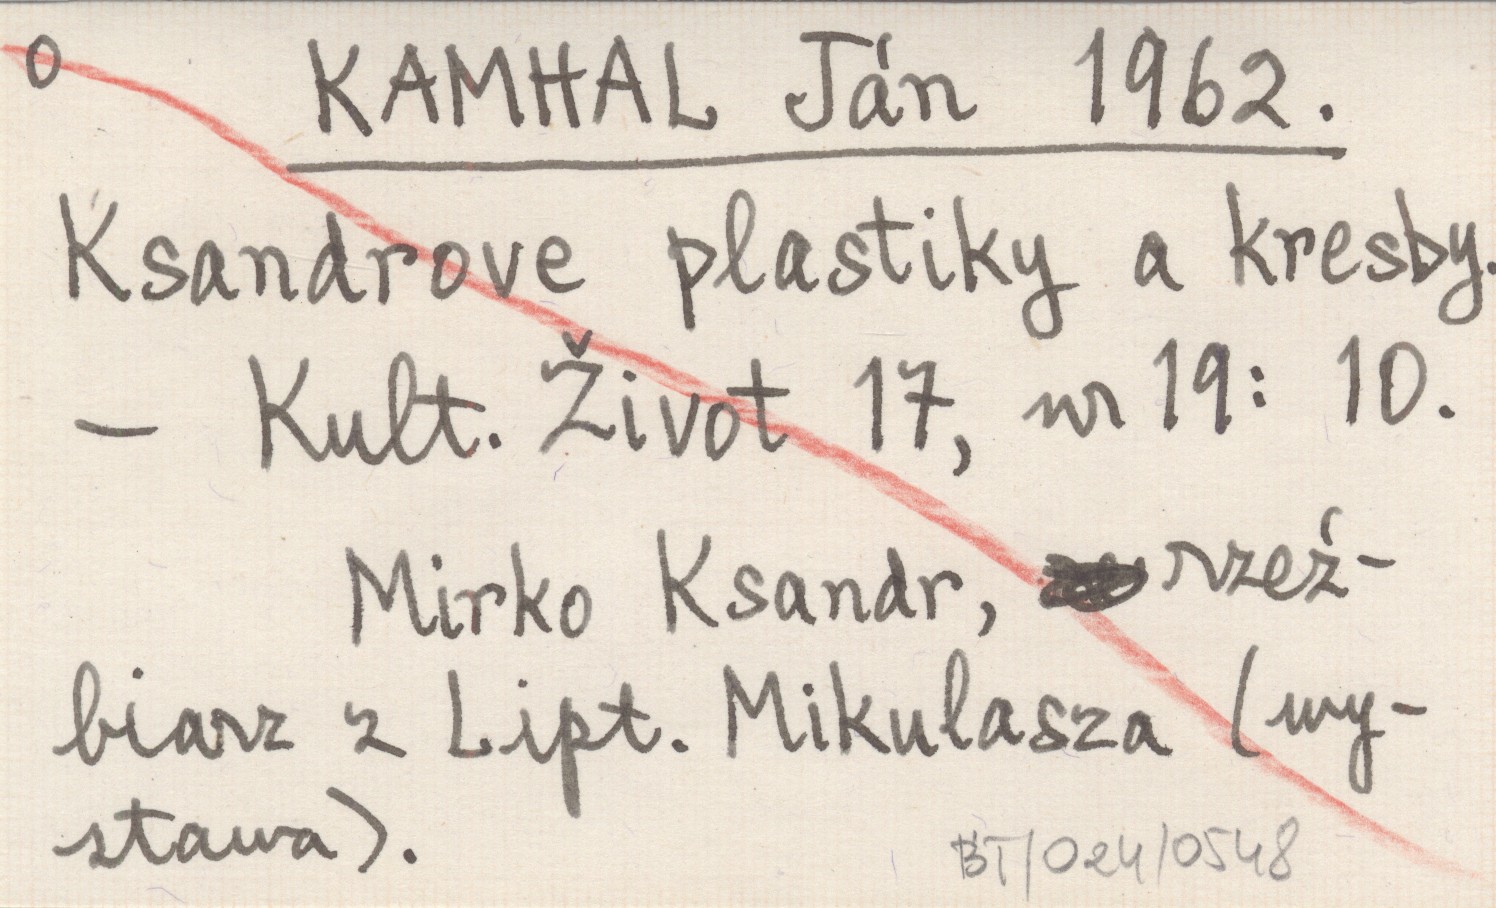 o KAMHAL Ján 1962.
Ksandrove plastiky a kresby.
- Kult. Život 17, nr 19: 10.
Mirko Ksandr, rzeź-
biarz z Lipt. Mikulasza (wy-
stawa).
BT/024/0548